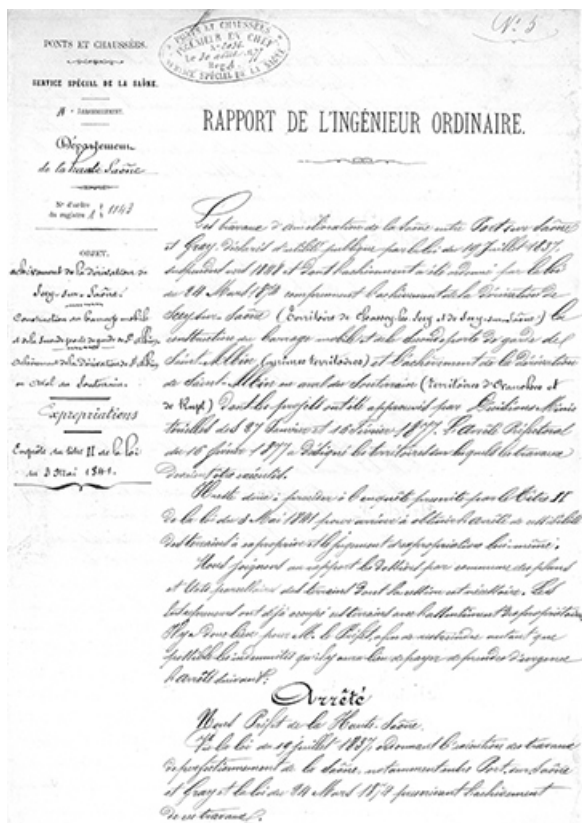 N° 5
PONTS ET CHAUSSÉES
INGÉNIEUR EN CHEF
SERVICE SPÉCIAL DE LA SAÔNE
PONTS ET CHAUSSÉES.
SERVICE SPÉCIAL DE LA SAÔNE.
ARRONDISSEMENT.
Département
de la haute Saône
N° d'ordre
du registre A 1143
OBJET.
achèvement de la dérivation de
Scey-sur-Saône.
Construction du barrage mobile
et de la seconde porte de garde de St Albin
achèvement de la dérivation de St Albin
en aval du Souterrain.
Expropriations
Enquête du titre II de la loi
du 3 Mai 1841.
RAPPORT DE L'INGÉNIEUR ORDINAIRE.
Les travaux d'amélioration de la Saône entre Port-sur-Saône
et Gray, déclarés d'utilité publique par la loi du 19 Juillet 1837,
suspendus vers 1848 et dont l'achèvement a été ordonné par la loi
du 24 Mars 1874 comprennent l'achèvement de la dérivation de
Scey-sur-Saône (Territoires de Chassey-les-Scey et de Scey-sur-Saône) la
construction du barrage mobile et de la seconde porte de garde de
Saint-Albin (mêmes territoires) et l'achèvement de la dérivation
de Saint-Albin en aval du Souterrain (Territoires d'Ovanches et
de Rupt) dont les projets ont été approuvés par Décisions Minis
térielles des 27 Janvier et 16 Février 1877. L'arrêté Préfectoral
du 16 février 1877 a désigné les territoires sur lesquels les travaux
devaient être exécutés.
Il reste donc à procéder à l'enquête prescrite par le titre II
de la loi du 3 Mai 1841 pour arriver à obtenir l'arrêté de cessibilité
des terrains à exproprier et le jugement d'expropriation lui-même.
Nous joignons au rapport le dossier par commune des plans
et états parcellaires des terrains dont la cession est nécessaire. Les
Entrepreneurs ont déjà occupé ces terrains avec l'assentiment des propriétaires
Il y a donc lieu, pour M. le Préfet, afin de restreindre autant que
possible les indemnités qu'il y aura lieu de payer, de prendre d'urgence
l'arrêté suivant:
Arrêté
Nous Préfet de la Haute Saône,
Vu la loi du 19 juillet 1837 ordonnant l'exécution des travaux
de perfectionnement de la Saône, notamment entre Port-sur-Saône
et Gray et la loi du 24 Mars 1874 prescrivant l'achèvement
de ces travaux.